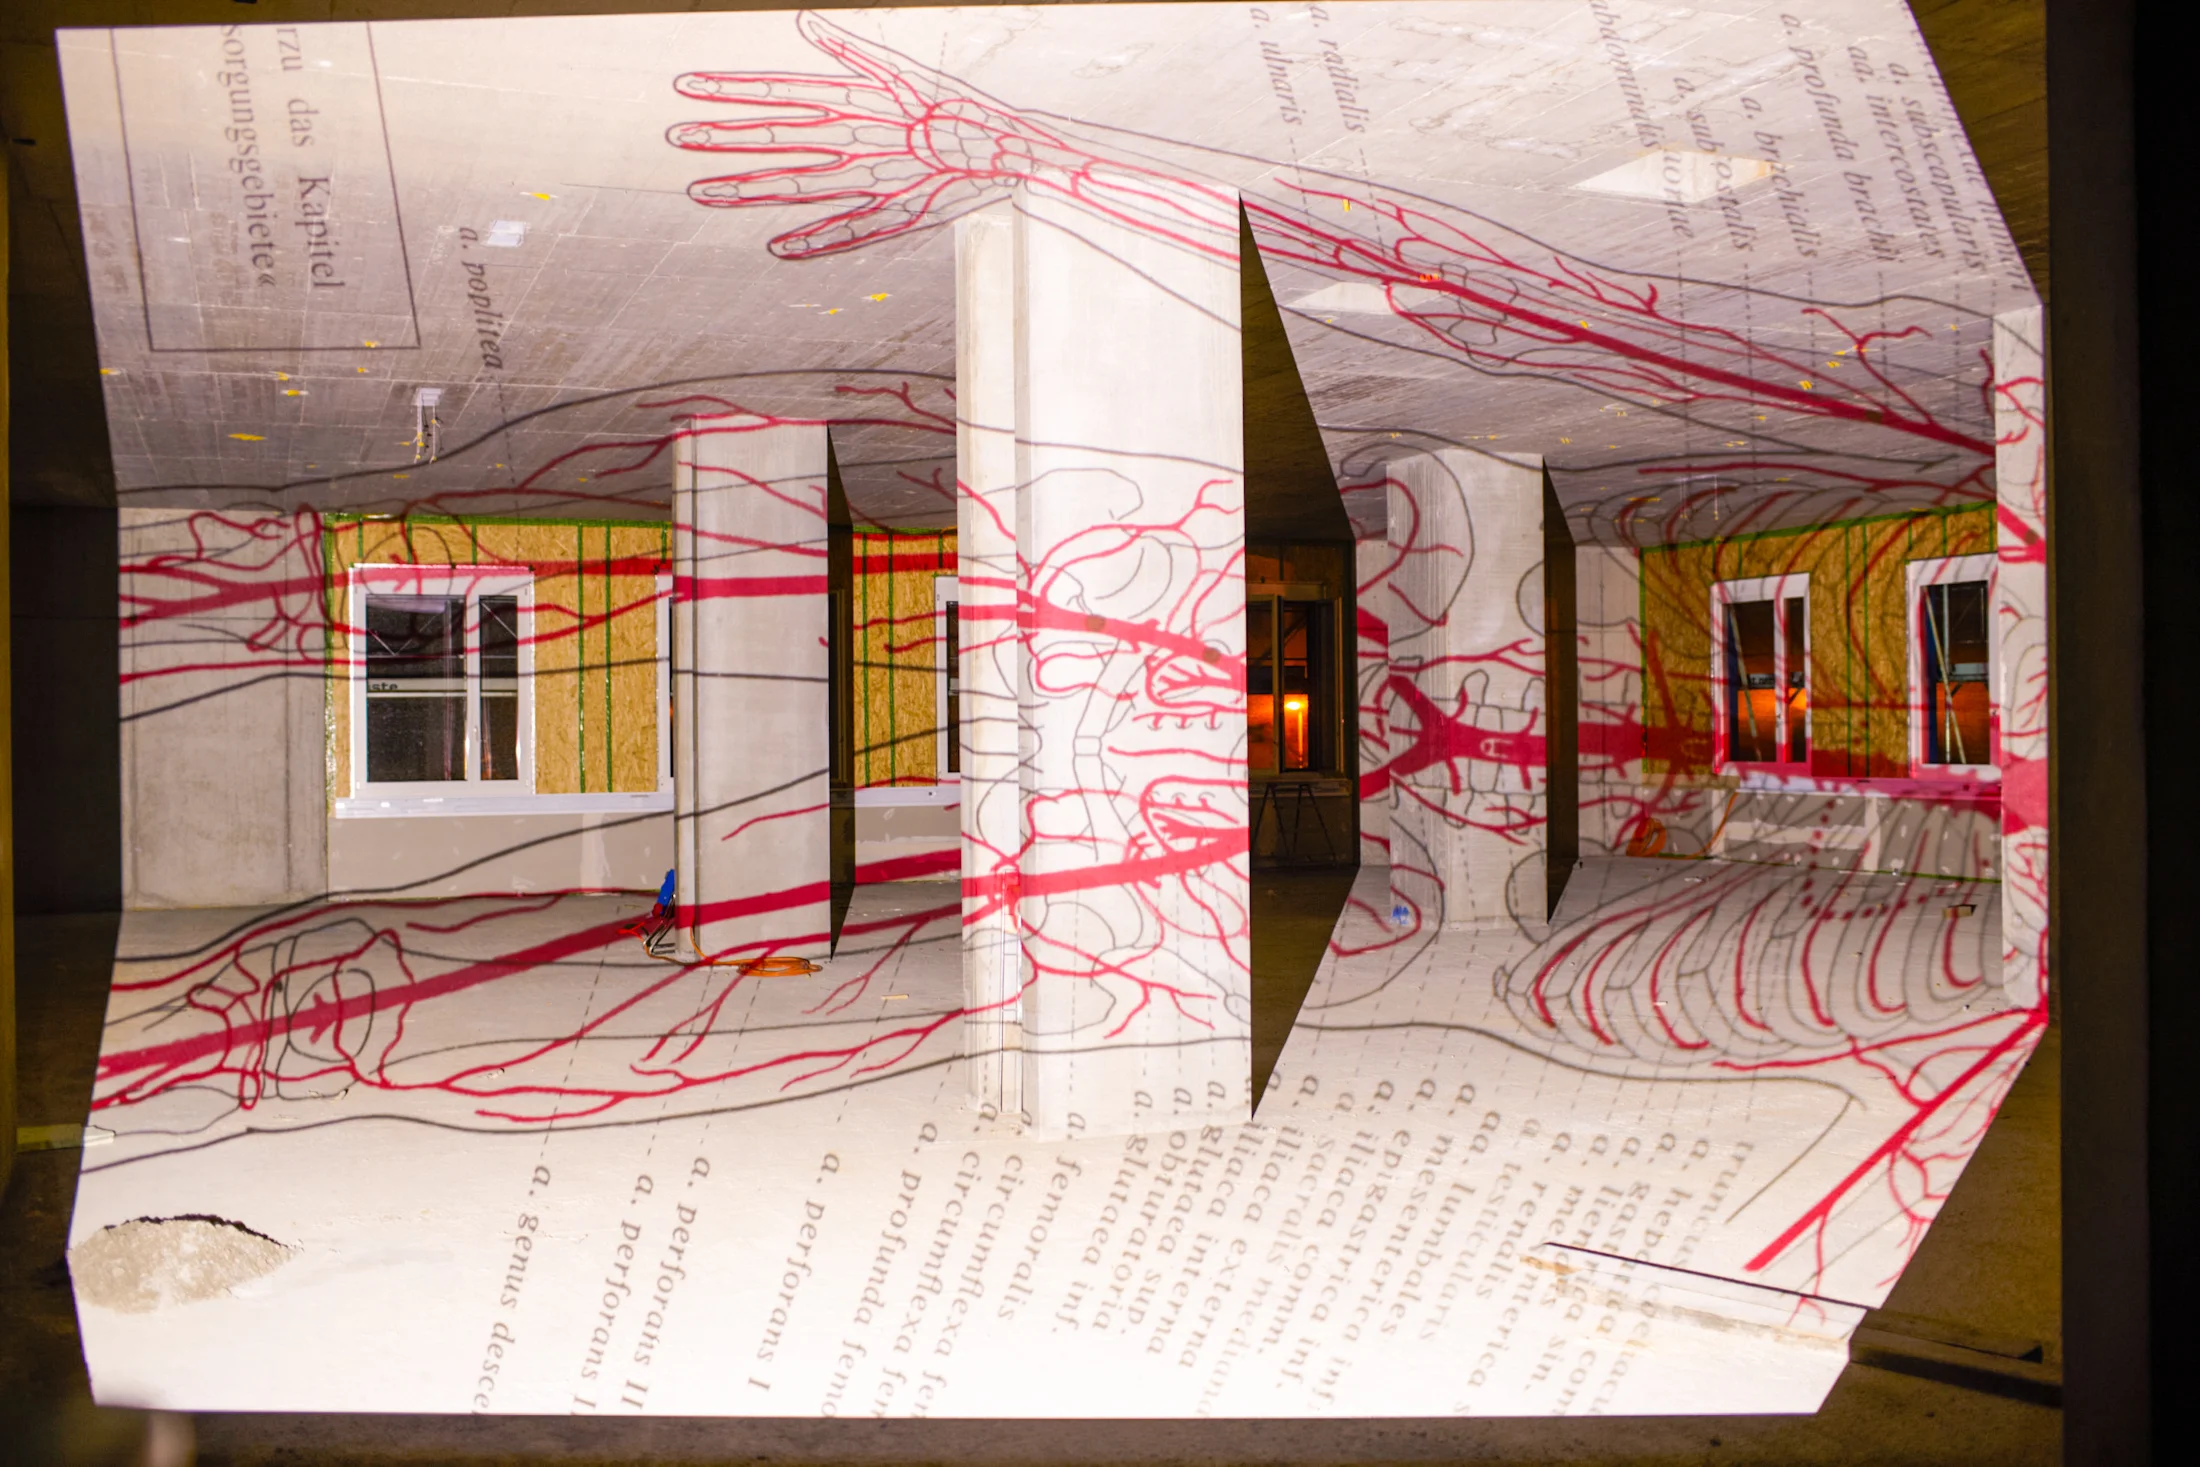 a. subscapularis
aa. intercostales
a. profunda brachii
a. brachialis
a. subcostalis
abdominalis aortae
a. radialis
a. ulnaris
a. poplitea
rzu das Kapitel
sorgungsgebiete«
truncus
a.
a.
a.
a. mesenterica s
a. renalis
a. testicularis
aa. lumbales
a. mesenterica inf.
a. epigastrica inf.
a. iliaca comm.
a. sacralis mediana
a. iliaca externa
a. iliaca interna
a. glutaea sup.
a. obturatoria
a. glutaea inf.
a. femoralis
a. circumflexa fe
a. circumflexa fem
a. profunda femo
a. perforans I
a. perforans II
a. perforans II
a. genus desce